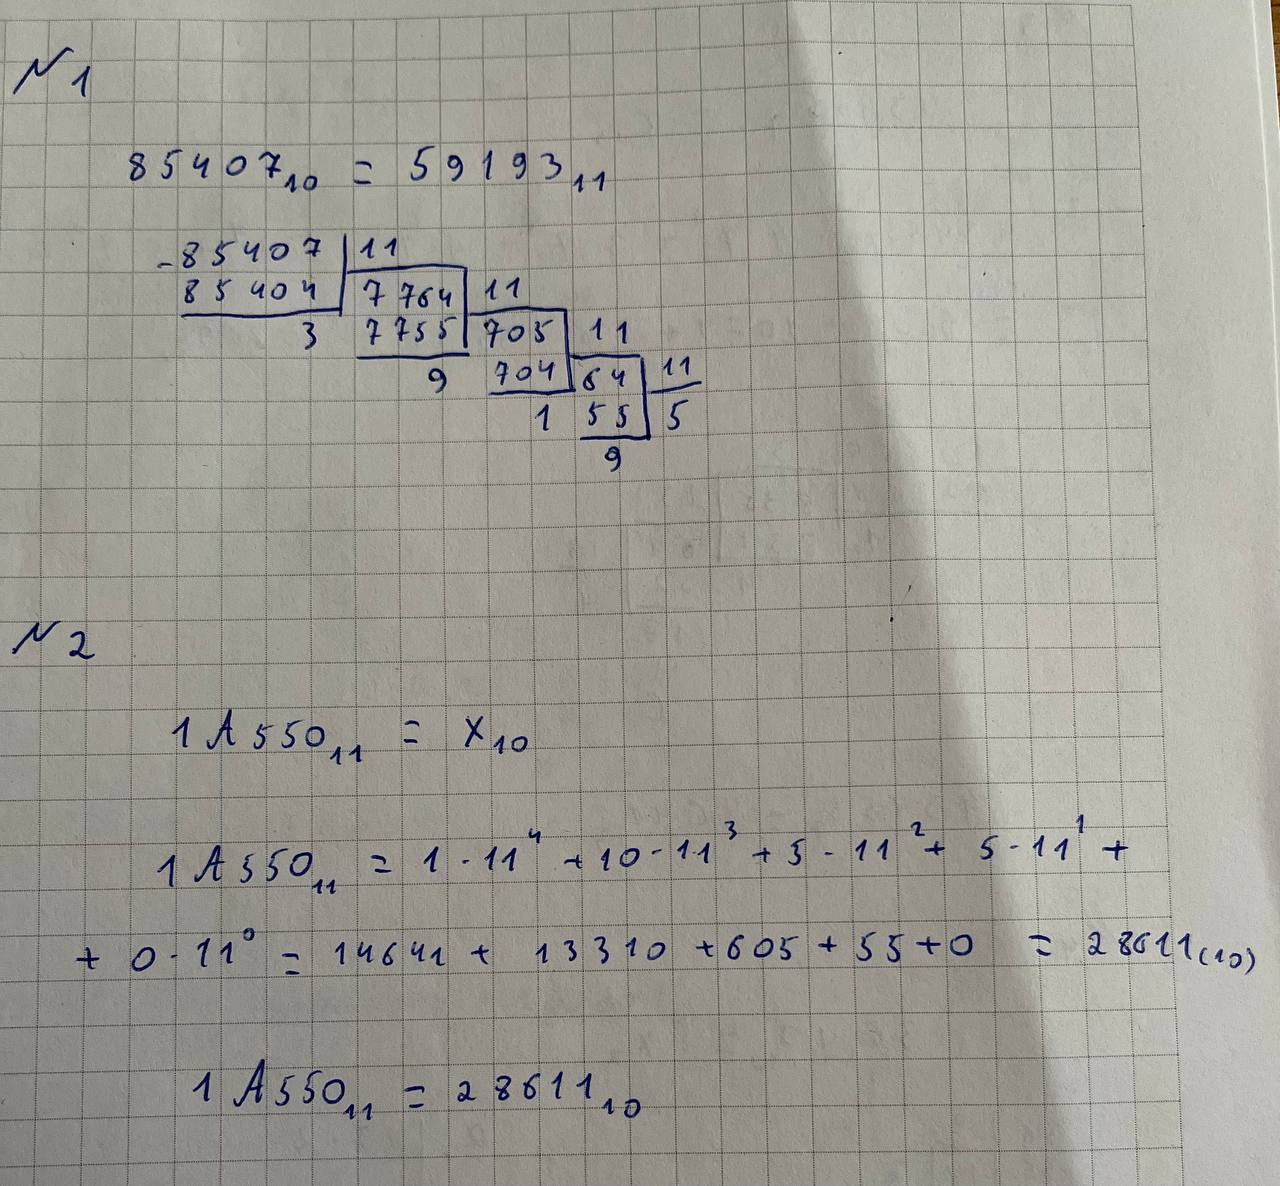 N 1
85407₁₀ = 59193₁₁
-85407 | 11
85404 | 7764 | 11
3 | 7755 | 705 | 11
9 | 704 | 64 | 11
1 | 55 | 5
9
N 2
1A550₁₁ = X₁₀
1A550₁₁ = 1 · 11⁴ + 10 · 11³ + 5 · 11² + 5 · 11¹ +
+ 0 · 11⁰ = 14641 + 13310 + 605 + 55 + 0 = 28611₍₁₀₎
1A550₁₁ = 28611₁₀